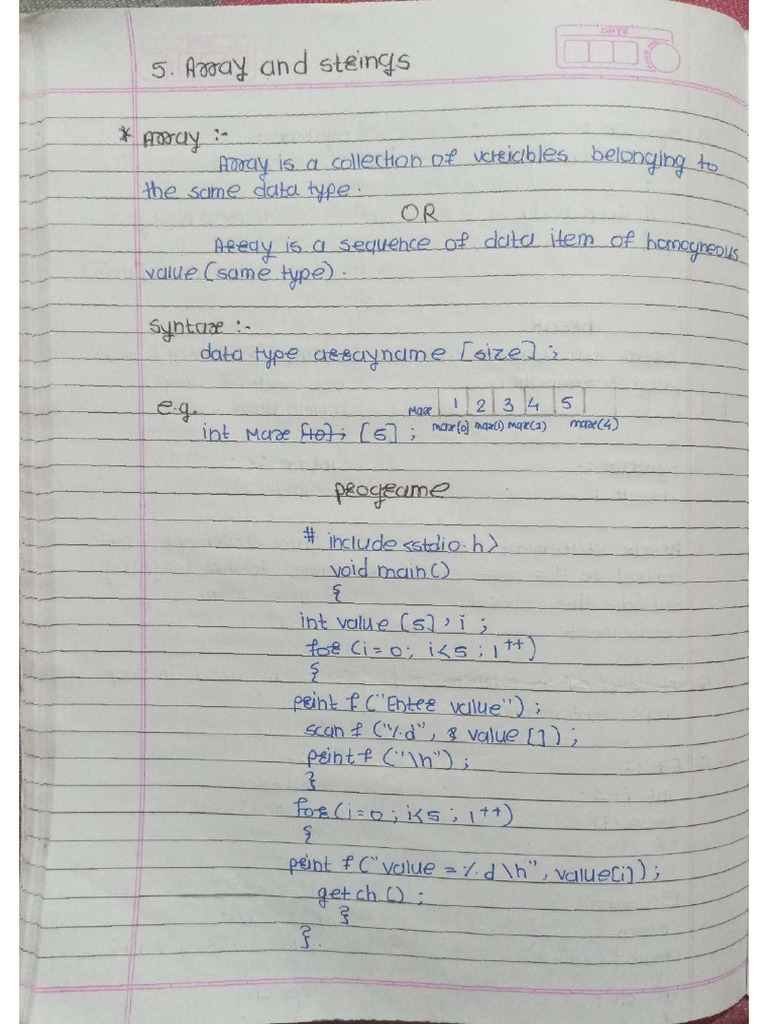 DATE
5. Array and strings
* Array :-
Array is a collection of variables belonging to
the same data type.
OR
Array is a sequence of data item of homogneous
value (same type).
Syntax :-
data type arrayname [size] ;
e.g. Max 1 2 3 4 5
int Max [10]; [5] ; max(0) max(1) max(2) max(4)
programe
# include <stdio.h>
void main()
{
int value [5], i ;
for (i=0; i<5 ; i++)
{
print f ("Enter value") ;
scan f ("%d", & value []) ;
print f ("\n") ;
}
for (i=0 ; i<5 ; i++)
{
print f ("value = %d \n", value[i]) ;
getch () ;
}
}.